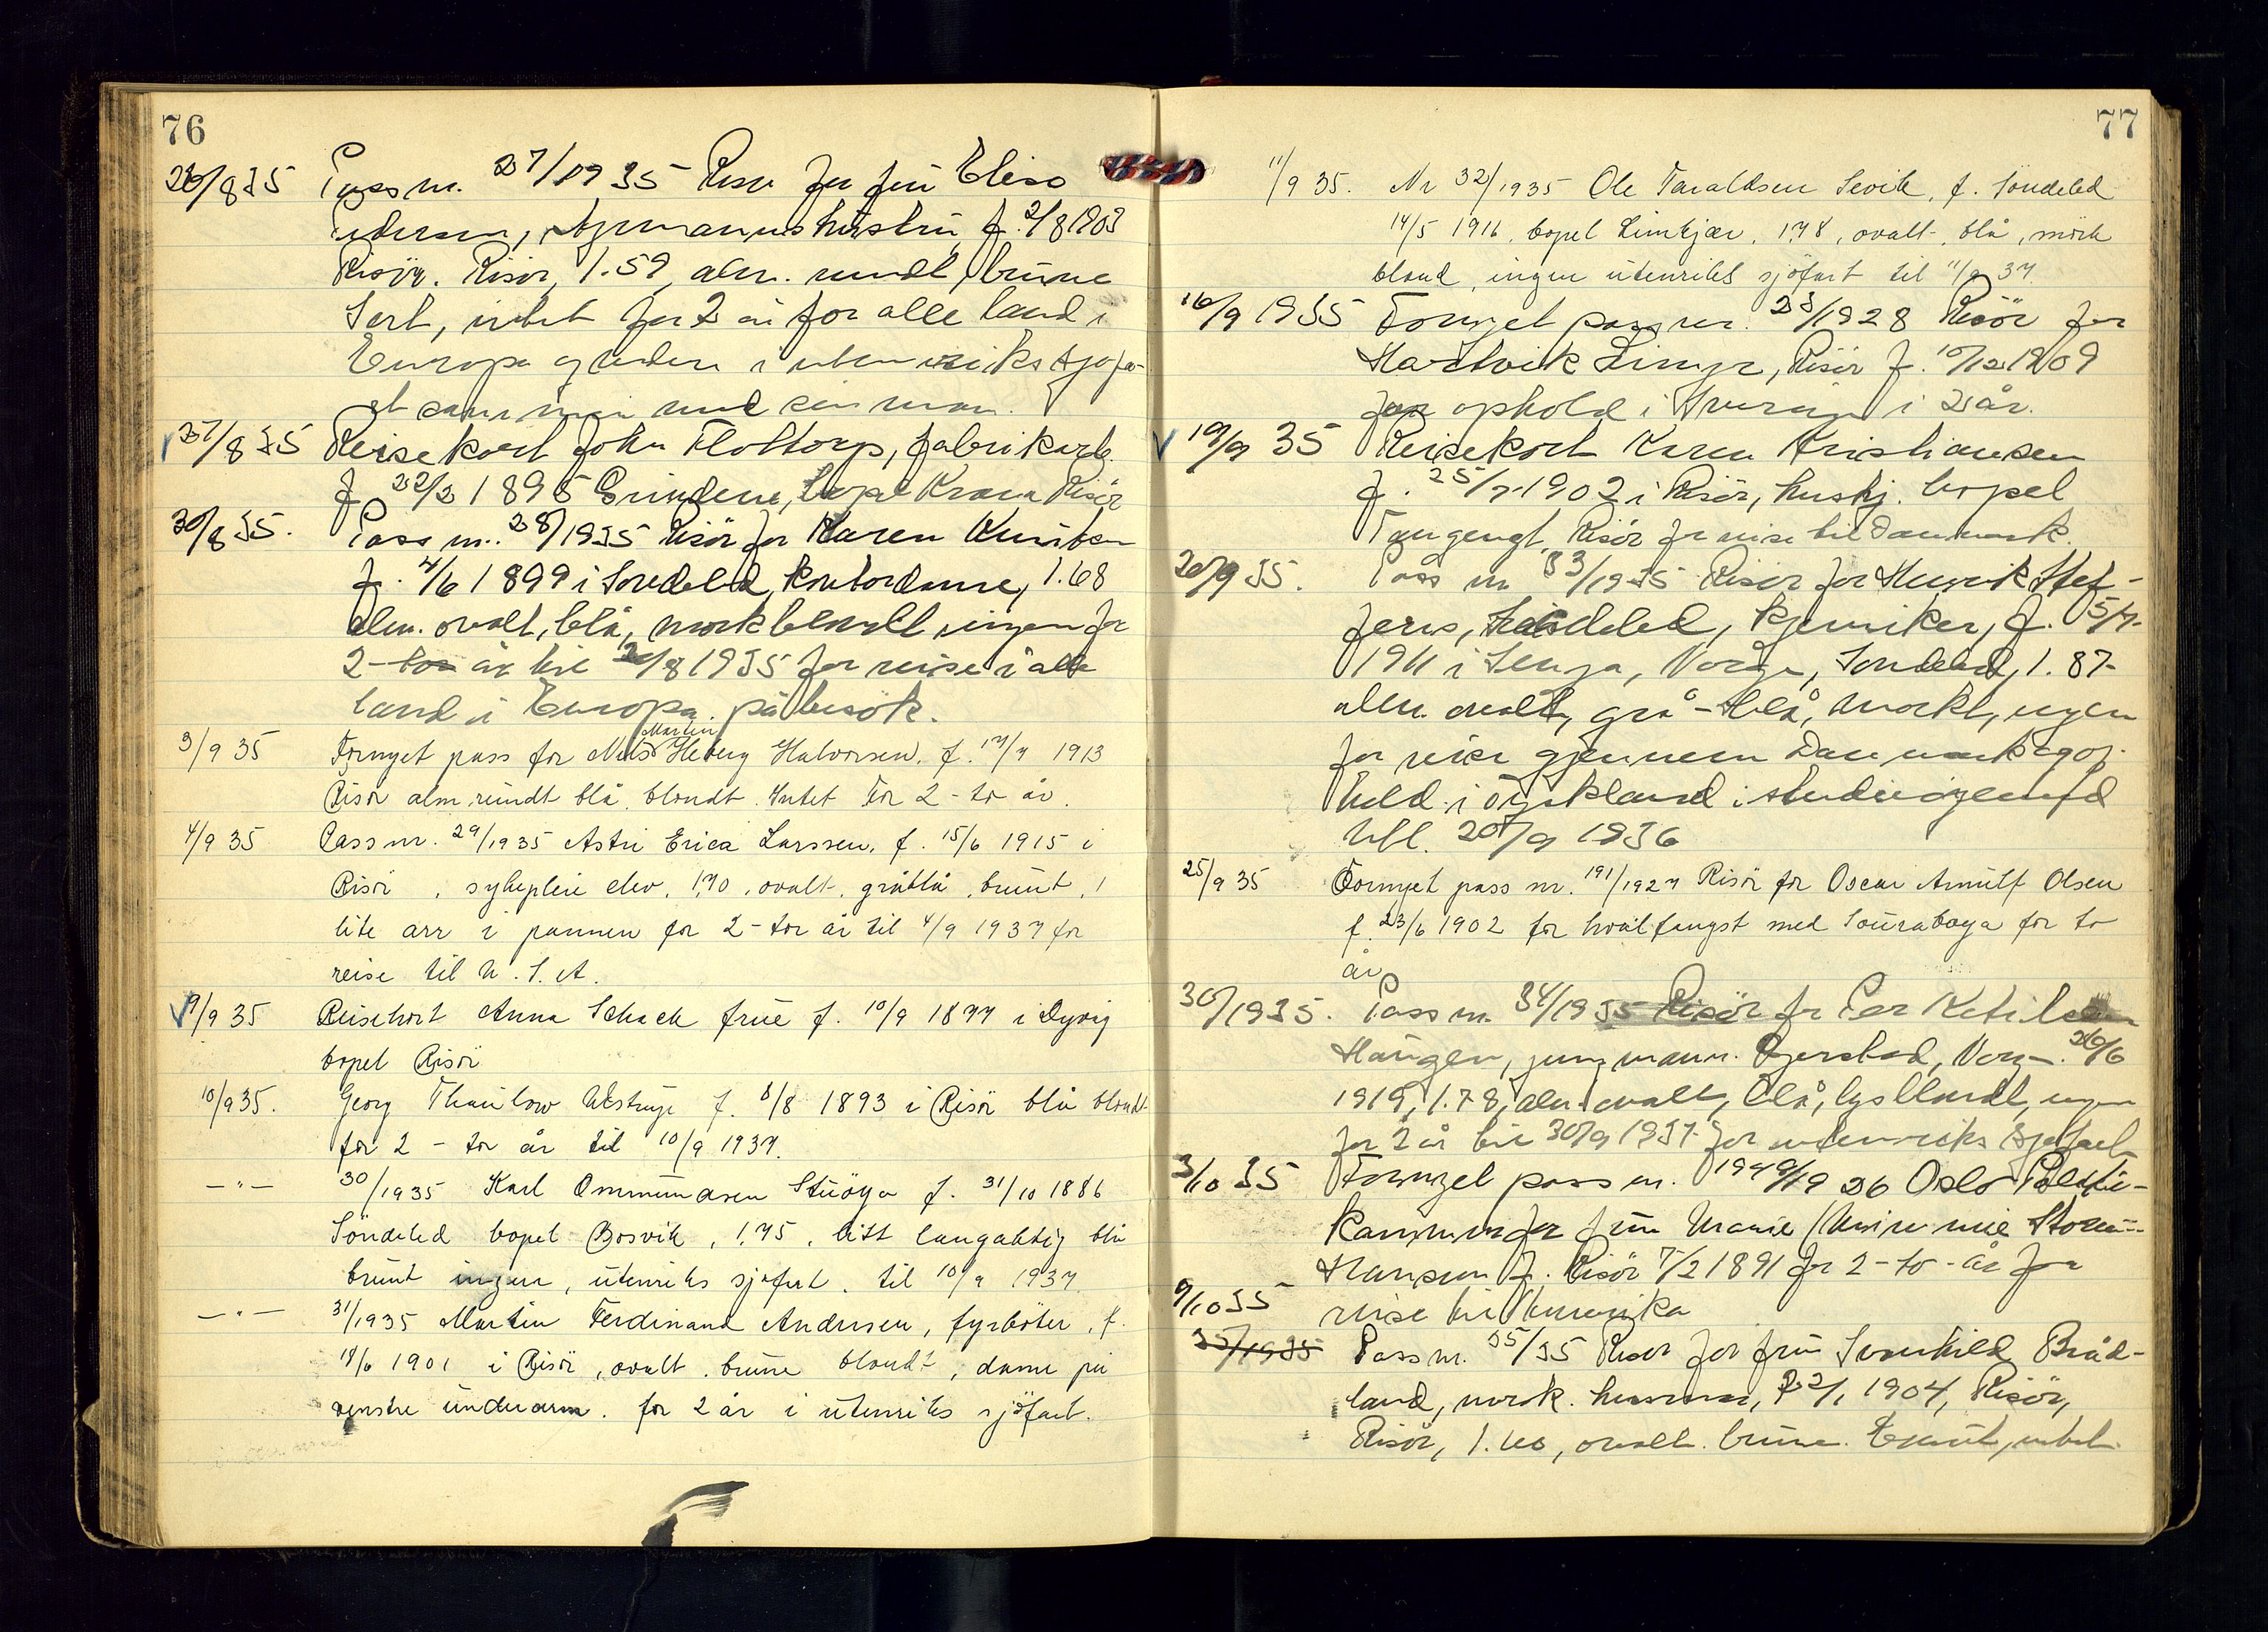 76
26/8 35 Pass nr. 27/1935 Risør for fru Elise
Pedersen, styrmannshustru f. 2/8 1903
Risør. Risør, 1.59, alm. rundt, brune
Sort, intet for 2 år for alle land i
Europa og uten i utenriks sjøfa-
rt sammen med sin mann.
27/8 35 Reisekort John Flottorp, fabrikarb.
f 22/2 1895 Grindene, bopel Krana Risör
30/8 35. Pass nr. 28/1935 Risör for Karen Knutsen
f. 4/6 1899 i Søndeled, kontordame, 1.68
alm. ovalt, blå, mørkblondt, ingen for
2-to år til 30/8 1935 for reise i alle
land i Europa på besök.
3/9 35 Fornyet pass for Nils Martin Heberg Halvorsen. f. 17/7 1913
Risör alm. rundt blå, blondt. Intet For 2 - to år.
4/9 35 Pass nr. 29/1935 Astri Erica Larssen, f. 15/6 1915 i
Risör, sykepleie elev, 1,70, ovalt, gråblå, brunt, 1
lite arr i pannen for 2 - to år til 4/9 1937 for
reise til U.S.A.
9/9 35 Reisekort Anna Schack frue f. 10/9 1877 i Dyvig
bopel Risör
10/9 35. Georg Thaulow Ustrup f. 8/8 1893 i Risör blå blondt
for 2 - to år til 10/9 1937.
- " - 30/1935 Karl Ommundsen Stuöya f. 31/10 1886
Söndeled bopel Bosvik, 1,75, litt langaktig blå
brunt ingen, utenriks sjøfart. til 10/9 1937.
- " - 31/1935 Martin Ferdinand Andersen, fyrböter, f.
18/6 1901 i Risör, ovalt. brune blondt, dame på
venstre underarm. for 2 år i utenriks sjöfart.
77
11/9 35. Nr 32/1935 Ole Taraldsen Sevik, f. Söndeled
14/5 1916, bopel Limkjær, 1,78, ovalt, blå, mörk
blond, ingen utenriks sjöfart til 11/9 37.
16/9 1935 Fornyet pass nr. 23/1928 Risör for
Hartvik Linge, Risör f. 10/12 1909
for ophold i Sverige i 2 år.
19/9 35 Reisekort Karen Kristiansen
f. 25/7 1902 i Risör, hushj. bopel
Tangengt. Risör for reise til Danmark.
20/9 35. Pass nr 33/1935 Risør for Henrik Stef-
fens, Søndeled, kjemiker, f. 5/7-
1911 i Senja, Norge, Søndeled, 1.87-
alm. ovalt, grå-blå, mørkt, ingen
for reise gjennem Danmark og op-
hold i Tyskland i studieöiemed
Utl. 20/9 1936
25/9 35 Fornyet pass nr. 191/1927 Risör for Oscar Arnulf Olsen
f. 23/6 1902 for hvalfangst med Sourabaya for to
år
30/1935. Pass nr. 34/1935 Risör for Per Ketilsen
Haugen, jungmann. Gjerstad, Norge. 26/6
1919, 1.78, alm. ovalt, blå, lysblondt, ingen
for 2 år til 30/9 1937 for utenriks sjøfart
3/10 35 Fornyet pass nr. 1949/1926 Oslo Politi-
kammer for fru
Hansen f. Risör 7/2 1891 for 2 - to - år for
9/10 35 reise til Amerika
35/1935 Pass nr. 35/35 Risør for fru Svanhild Bråd-
land, norsk. husmor, f 2/1 1904, Risör,
Risör, 1.60, ovalt. brune. brunt, intet.